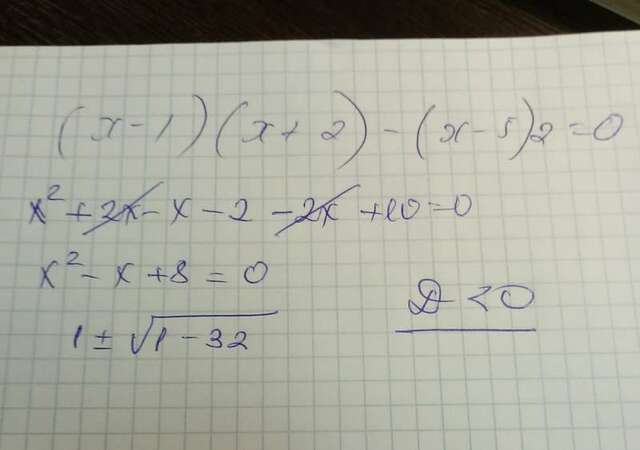 (x-1)(x+2)-(x-5)2=0
x²+2x-x-2-2x+10=0
x²-x+8=0
D<0
1±√1-32